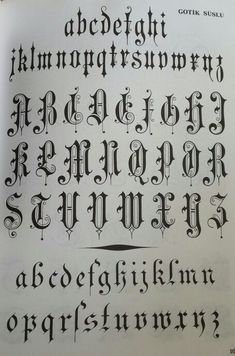 GOTİK SÜSLÜ
abcdefghi
jklmnopqrtsuvwxyz
ABCDEFGHIJ
KLMNQPOR
STUVWXYZ
abcdefghijklmn
opqrſstuvwxyz